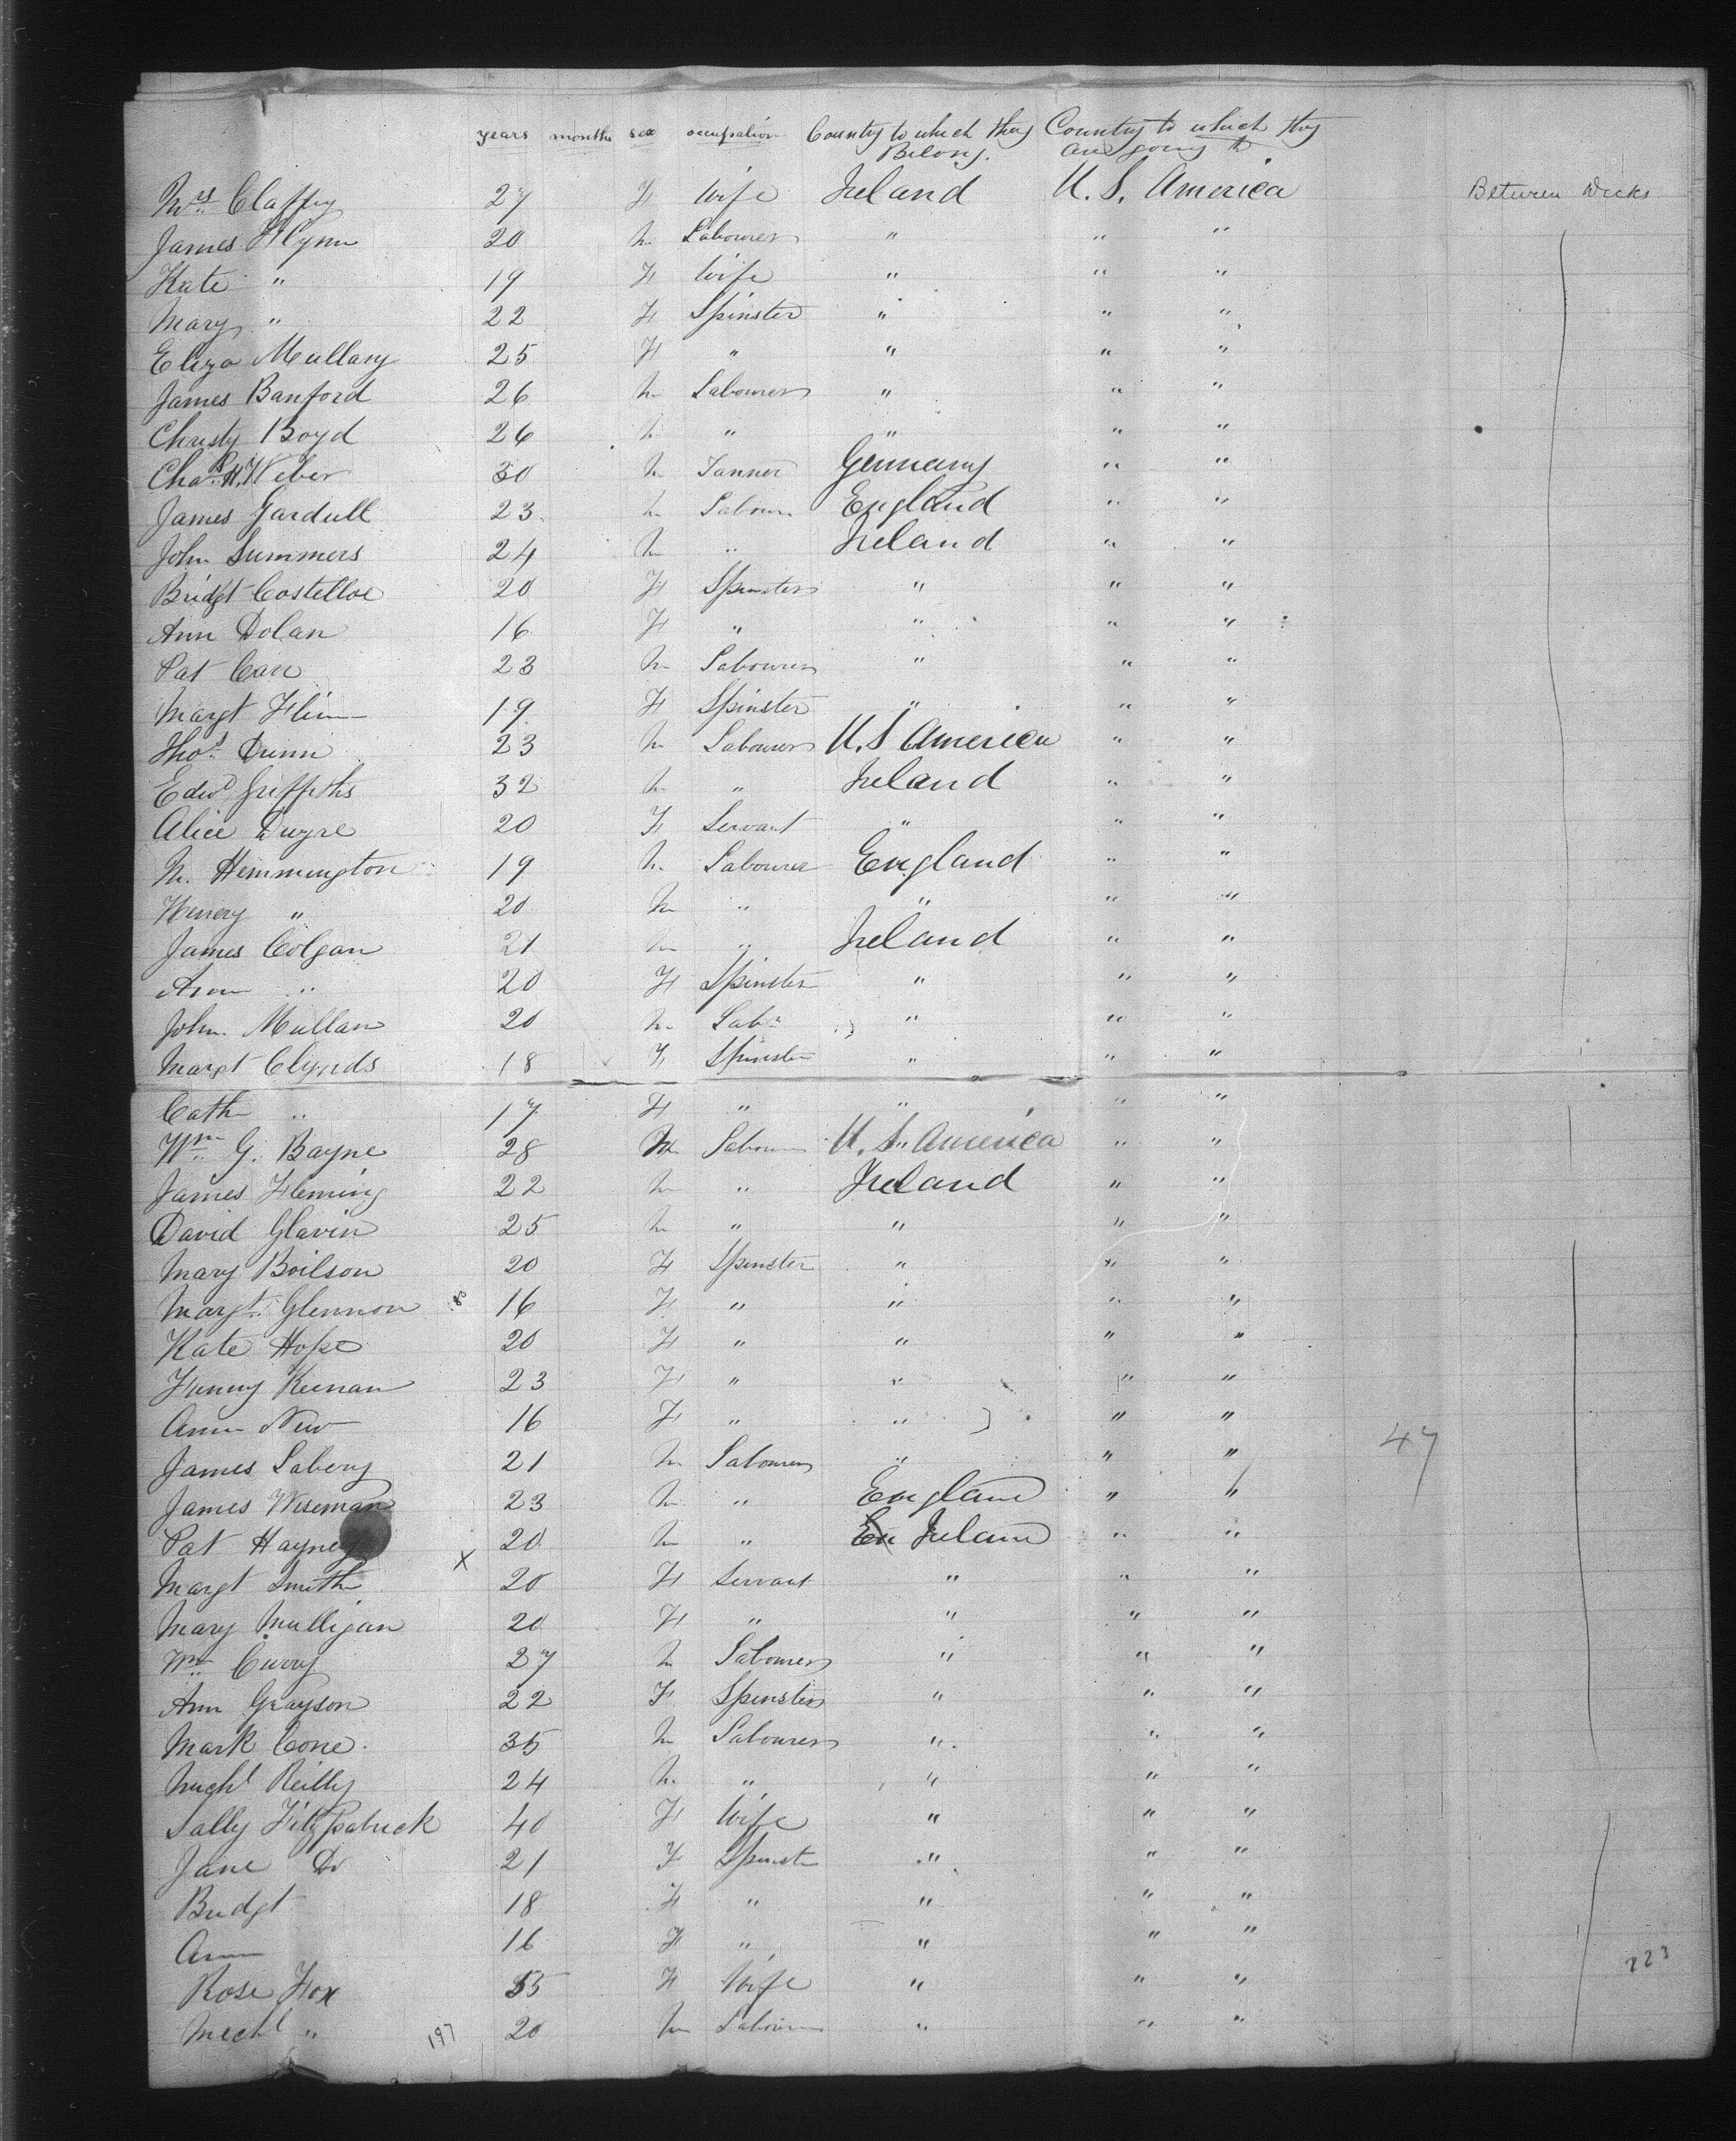 years months sex occupation Country to which they Belong. Country to which they are going to
Mrs Claffey 27 F Wife Ireland U. S. America Between Decks
James Flynn 20 M Labourer " " "
Kate " 19 F Wife " " "
Mary " 22 F Spinster " " "
Eliza Mullary 25 F " " " "
James Banford 26 M Labourer " " "
Christy Boyd 26 M " " " "
Chas H. Weber 30 M Tanner Germany " "
James Gardull 23 M Labour England " "
John Summers 24 M " Ireland " "
Bridgt Costelloe 20 F Spinster " " "
Ann Dolan 16 F " " " "
Pat Carr 23 M Labourer " " "
Margt Flinn 19 F Spinster " " "
Thos Dunn 23 M Labourer U. S America " "
Edwd Griffiths 32 M " Ireland " "
Alice Dwyre 20 F Servant " " "
M. Hemmington 19 M Labourer England " "
Henery " 20 M " " " "
James Colgan 21 M " Ireland " "
Ann " 20 F Spinster " " "
John Mullan 20 M Labr " " "
Margt Clynds 18 F Spinster " " "
Cath " 17 F " " " "
Wm G. Bayne 28 M Labour U. S. America " "
James Fleming 22 M " Ireland " "
David Glavin 25 M " " " "
Mary Boilson 20 F Spinster " " "
Margt Glennon 16 F " " " "
Kate Hope 20 F " " " "
Funny Keenan 23 F " " " "
Ann New 16 F " " " "
James Labery 21 M Labourer " " " 47
James Wiseman 23 M " England " "
Pat Hayney 20 M " En Ireland " "
Margt Smith X 20 F Servant " " "
Mary Mulligan 20 F " " " "
Wm Curry 27 M Labourer " " "
Ann Grayson 22 F Spinster " " "
Mark Cone. 35 M Labourer " " "
Michl Reilly 24 M " " " "
Sally Fitzpatrick 40 F Wife " " "
Jane Do 21 F Spinst " " "
Bridgt 18 F " " " "
Ann 16 F " " " "
Rose Fox 55 F Wife " " " 223
Michl " 197 20 M Labour " " "